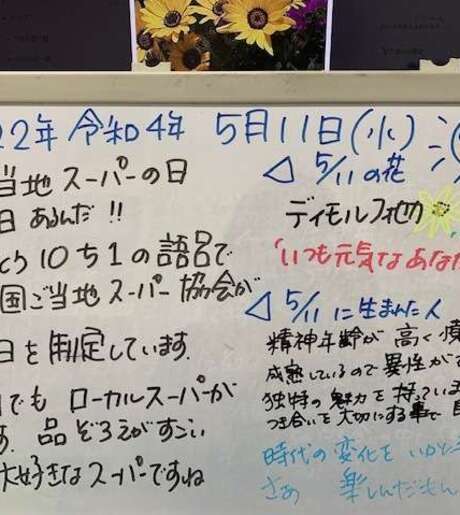 22年 令和4年 5月11日(水)
当地スーパーの日
日 あるんだ!!
ち1の語呂で
国ご当地スーパー協会が
日を制定しています.
でも ローカルスーパーが
す. 品ぞろえがすごい
大好きなスーパーですね
◁ 5/11の花
ディモルフォセカ
"いつも元気なあなた
◁ 5/11に生まれた人
精神年齢が高く
成熟しているので異性が
独特の魅力を持っていま
つき合いを大切にする事で
時代の変化を いかに
さあ 楽しんだもん